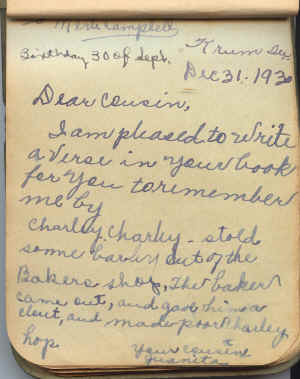 To Merle Campbell
Birthday 30 of Sept.
Krum Tex.
Dec 31 - 1930
Dear Cousin,
I am pleased to write
a verse in your book
for you to remember
me by
Charley, Charley - stold
some barley out of the
Bakers shop, The baker
came out, and gave him a
clout, and made poor Charley
hop
Your cousin
Juanita